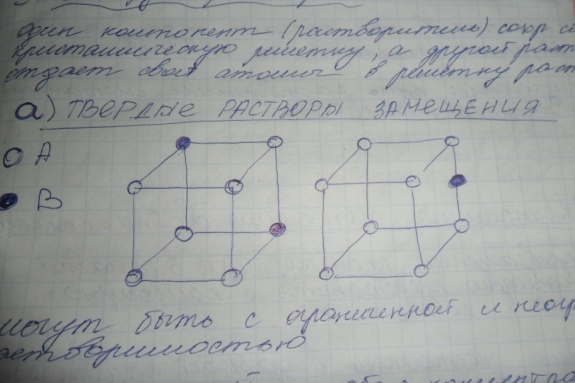 один компонент (растворитель) сохр
кристаллическую решетку, а другой раст
отдает свои атомы в решетку раст
а) ТВЕРДЫЕ РАСТВОРЫ ЗАМЕЩЕНИЯ
А
В
могут быть с ограниченной и неогр
астворимостью